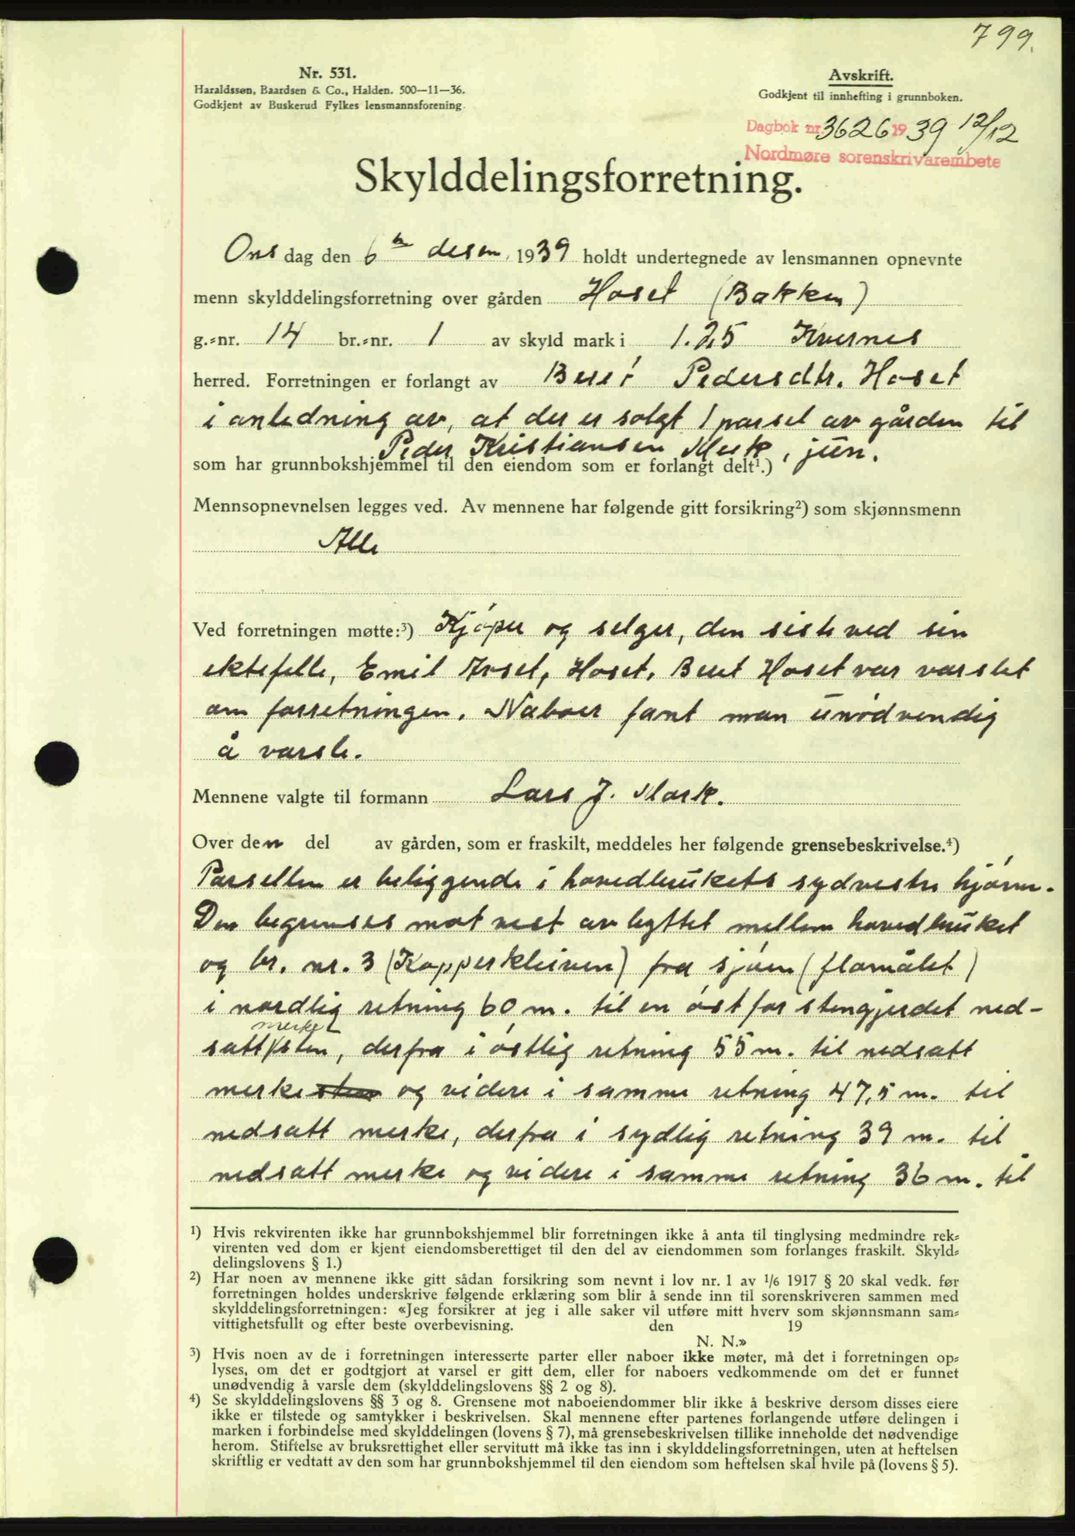 799.
Nr. 531.
Haraldssøn, Baardsen & Co., Halden. 500—11—36.
Godkjent av Buskerud Fylkes lensmannsforening.
Avskrift.
Godkjent til innhefting i grunnboken.
Dagbok nr. 3626 1939 12/12
Nordmøre sorenskrivarembete
Skylddelingsforretning.
Ons dag den 6te desem. 1939 holdt undertegnede av lensmannen opnevnte
menn skylddelingsforretning over gården Hoset (Bakken)
g.=nr. 14 br.=nr. 1 av skyld mark i 1.25 Kvernes
herred. Forretningen er forlangt av Berit Pedersdtr. Hoset
i anledning av, at der er solgt 1 parsel av gården til
Peder Kristiansen Mork, jun.
som har grunnbokshjemmel til den eiendom som er forlangt delt¹.)
Mennsopnevnelsen legges ved. Av mennene har følgende gitt forsikring²) som skjønnsmenn
Alle
Ved forretningen møtte:³) Kjøper og selger, den siste ved sin
ektefelle, Emil Hoset. Berit Hoset var varslet
om forretningen. Naboer fant man unødvendig
å varsle.
Mennene valgte til formann Lars J. Mork.
Over den del av gården, som er fraskilt, meddeles her følgende grensebeskrivelse.⁴)
Parsellen er beliggende i hovedbrukets sydvestre hjørne.
Den begrenses mot vest av byttet mellem hovedbruket
og br. nr. 3 (Kopperkleiven) fra sjøen (flomålet)
i nordlig retning 60 m. til en øst for stengjerdet ned-
satt merkesten, derfra i østlig retning 55 m. til nedsatt
merke og videre i samme retning 47,5 m. til
nedsatt merke, derfra i sydlig retning 39 m. til
nedsatt merke og videre i samme retning 36 m. til
¹) Hvis rekvirenten ikke har grunnbokshjemmel blir forretningen ikke å anta til tinglysing medmindre rek=
virenten ved dom er kjent eiendomsberettiget til den del av eiendommen som forlanges fraskilt. Skyld=
delingslovens § 1.)
²) Har noen av mennene ikke gitt sådan forsikring som nevnt i lov nr. 1 av 1/6 1917 § 20 skal vedk. før
forretningen holdes underskrive følgende erklæring som blir å sende inn til sorenskriveren sammen med
skylddelingsforretningen: «Jeg forsikrer at jeg i alle saker vil utføre mitt hverv som skjønnsmann sam=
vittighetsfullt og efter beste overbevisning. den 19
N. N.»
³) Hvis noen av de i forretningen interesserte parter eller naboer ikke møter, må det i forretningen op=
lyses, om det er godtgjort at varsel er gitt dem, eller for naboers vedkommende om det er funnet
unødvendig å varsle dem (skylddelingslovens §§ 2 og 8).
⁴) Se skylddelingslovens §§ 3 og 8. Grensene mot naboeiendommer blir ikke å beskrive dersom disses eiere
ikke er tilstede og samtykker i beskrivelsen. Skal mennene efter partenes forlangende utføre delingen i
marken i forbindelse med skylddelingen (lovens § 7), må grensebeskrivelsen tillike inneholde det nødvendige
herom. Stiftelse av bruksrettighet eller servitutt må ikke tas inn i skylddelingsforretningen, uten at heftelsen
skriftlig er vedtatt av den som har grunnbokshjemmel til den eiendom som heftelsen skal hvile på (lovens § 5).